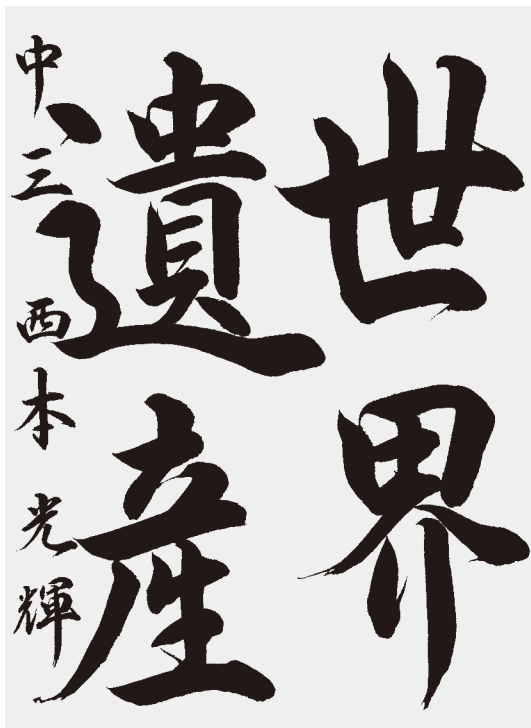 世界
遺産
中三 西本 光輝